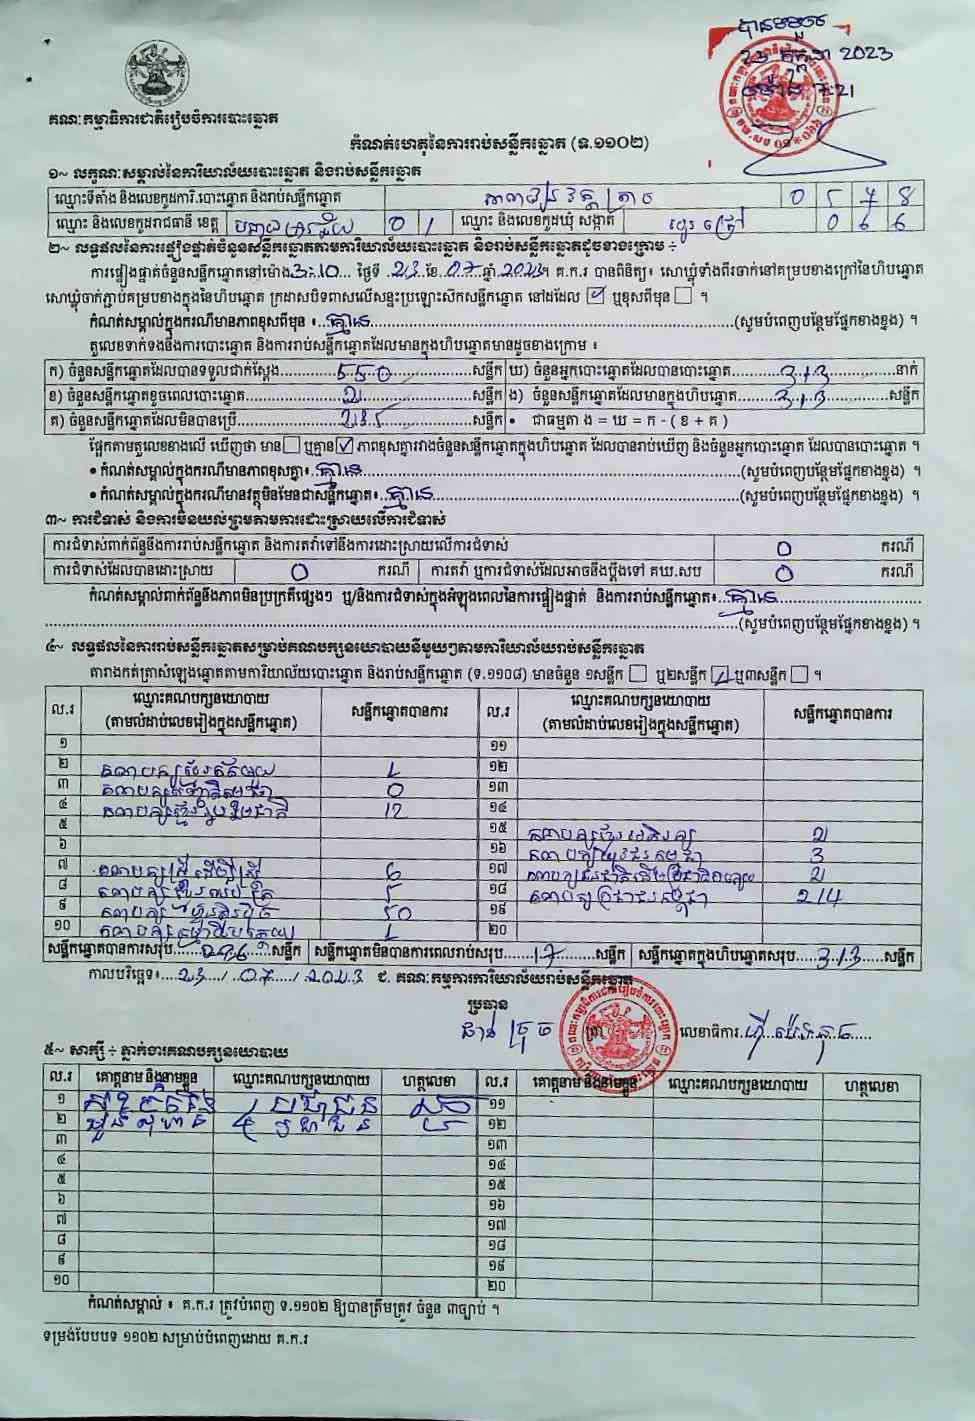 23 កក្កដា 2023
ម៉ោង 7:21
គណៈកម្មាធិការជាតិរៀបចំការបោះឆ្នោត
កំណត់ហេតុនៃការរាប់សន្លឹកឆ្នោត (ទ.១១០២)
១~ លក្ខណៈសម្គាល់នៃការិយាល័យបោះឆ្នោត និងរាប់សន្លឹកឆ្នោត
ឈ្មោះទីតាំង និងលេខកូដការិ.បោះឆ្នោត និងរាប់សន្លឹកឆ្នោត 0 5 7 8
ឈ្មោះ និងលេខកូដរាជធានី ខេត្ត បន្ទាយមានជ័យ 0 1 ឈ្មោះ និងលេខកូដឃុំ សង្កាត់ 0 6 6
២~ លទ្ធផលនៃការផ្ទៀងផ្ទាត់ចំនួនសន្លឹកឆ្នោតតាមការិយាល័យបោះឆ្នោត និងរាប់សន្លឹកឆ្នោតដូចខាងក្រោម ÷
ការផ្ទៀងផ្ទាត់ចំនួនសន្លឹកឆ្នោតនៅម៉ោង 3:10 ថ្ងៃទី 23 ខែ 07 ឆ្នាំ 2023 ។ គ.ក.រ បានពិនិត្យ៖ សោឃ្លុំទាំងពីរចាក់នៅគម្របខាងក្រៅនៃហិបឆ្នោត
សោឃ្លុំចាក់ភ្ជាប់គម្របខាងក្នុងនៃហិបឆ្នោត ក្រដាសបិទពាសលើសន្ទះប្រឡោះសិកសន្លឹកឆ្នោត នៅដដែល ☑ ឬខុសពីមុន ☐ ។
កំណត់សម្គាល់ក្នុងករណីមានភាពខុសពីមុន ៖ គ្មាន (សូមបំពេញបន្ថែមផ្នែកខាងខ្នង) ។
តួលេខទាក់ទងនឹងការបោះឆ្នោត និងការរាប់សន្លឹកឆ្នោតដែលមានក្នុងហិបឆ្នោតមានដូចខាងក្រោម ៖
ក) ចំនួនសន្លឹកឆ្នោតដែលបានទទួលជាក់ស្តែង 550 សន្លឹក ឃ) ចំនួនអ្នកបោះឆ្នោតដែលបានបោះឆ្នោត 313 នាក់
ខ) ចំនួនសន្លឹកឆ្នោតខូចពេលបោះឆ្នោត 2 សន្លឹក ង) ចំនួនសន្លឹកឆ្នោតដែលមានក្នុងហិបឆ្នោត 313 សន្លឹក
គ) ចំនួនសន្លឹកឆ្នោតដែលមិនបានប្រើ 235 សន្លឹក • ជាធម្មតា ង = ឃ = ក - ( ខ + គ )
ផ្អែកតាមតួលេខខាងលើ ឃើញថា មាន ☐ ឬគ្មាន ☑ ភាពខុសគ្នារវាងចំនួនសន្លឹកឆ្នោតក្នុងហិបឆ្នោត ដែលបានរាប់ឃើញ និងចំនួនអ្នកបោះឆ្នោត ដែលបានបោះឆ្នោត ។
• កំណត់សម្គាល់ក្នុងករណីមានភាពខុសគ្នា៖ គ្មាន (សូមបំពេញបន្ថែមផ្នែកខាងខ្នង) ។
• កំណត់សម្គាល់ក្នុងករណីមានវត្ថុមិនមែនជាសន្លឹកឆ្នោត៖ គ្មាន (សូមបំពេញបន្ថែមផ្នែកខាងខ្នង) ។
៣~ ការជំទាស់ និងការមិនយល់ព្រមតាមការដោះស្រាយលើការជំទាស់
ការជំទាស់ពាក់ព័ន្ធនឹងការរាប់សន្លឹកឆ្នោត និងការតវ៉ាទៅនឹងការដោះស្រាយលើការជំទាស់ 0 ករណី
ការជំទាស់ដែលបានដោះស្រាយ 0 ករណី ការតវ៉ា ឬការជំទាស់ដែលអាចនឹងប្តឹងទៅ គឃ.សប 0 ករណី
កំណត់សម្គាល់ពាក់ព័ន្ធនឹងភាពមិនប្រក្រតីផ្សេងៗ ឬ/និងការជំទាស់ក្នុងអំឡុងពេលនៃការផ្ទៀងផ្ទាត់ និងការរាប់សន្លឹកឆ្នោត៖ គ្មាន
(សូមបំពេញបន្ថែមផ្នែកខាងខ្នង) ។
៤~ លទ្ធផលនៃការរាប់សន្លឹកឆ្នោតសម្រាប់គណបក្សនយោបាយនីមួយៗតាមការិយាល័យរាប់សន្លឹកឆ្នោត
តារាងកត់ត្រាសំឡេងឆ្នោតតាមការិយាល័យបោះឆ្នោត និងរាប់សន្លឹកឆ្នោត (ទ.១១០៨) មានចំនួន ១សន្លឹក ☐ ឬ២សន្លឹក ☑ ឬ៣សន្លឹក ☐ ។
ល.រ ឈ្មោះគណបក្សនយោបាយ (តាមលំដាប់លេខរៀងក្នុងសន្លឹកឆ្នោត) សន្លឹកឆ្នោតបានការ ល.រ ឈ្មោះគណបក្សនយោបាយ (តាមលំដាប់លេខរៀងក្នុងសន្លឹកឆ្នោត) សន្លឹកឆ្នោតបានការ
១ ១១
២ គណបក្សខ្មែរតែមួយ 1 ១២
៣ 0 ១៣
៤ គណបក្សខ្មែររួបរួមជាតិ 12 ១៤
៥ ១៥ 2
៦ ១៦ គណបក្សយុវជនកម្ពុជា 3
៧ គណបក្សស្ត្រីដើម្បីស្ត្រី 6 ១៧ 2
៨ 5 ១៨ គណបក្សប្រជាជនកម្ពុជា 214
៩ គណបក្សហ្វ៊ុនស៊ិនប៉ិច 50 ១៩
១០ 1 ២០
សន្លឹកឆ្នោតបានការសរុប 296 សន្លឹក សន្លឹកឆ្នោតមិនបានការពេលរាប់សរុប 17 សន្លឹក សន្លឹកឆ្នោតក្នុងហិបឆ្នោតសរុប 313 សន្លឹក
កាលបរិច្ឆេទ៖ 23 / 07 / 2023 ជ. គណៈកម្មការការិយាល័យរាប់សន្លឹកឆ្នោត
ប្រធាន
លេខាធិការ
៥~ សាក្សី ÷ ភ្នាក់ងារគណបក្សនយោបាយ
ល.រ គោត្តនាម និងនាមខ្លួន ឈ្មោះគណបក្សនយោបាយ ហត្ថលេខា ល.រ គោត្តនាម និងនាមខ្លួន ឈ្មោះគណបក្សនយោបាយ ហត្ថលេខា
១ ១១
២ ១២
៣ ១៣
៤ ១៤
៥ ១៥
៦ ១៦
៧ ១៧
៨ ១៨
៩ ១៩
១០ ២០
កំណត់សម្គាល់ ៖ គ.ក.រ ត្រូវបំពេញ ទ.១១០២ ឱ្យបានត្រឹមត្រូវ ចំនួន ៣ច្បាប់ ។
ទម្រង់បែបបទ ១១០២ សម្រាប់បំពេញដោយ គ.ក.រ